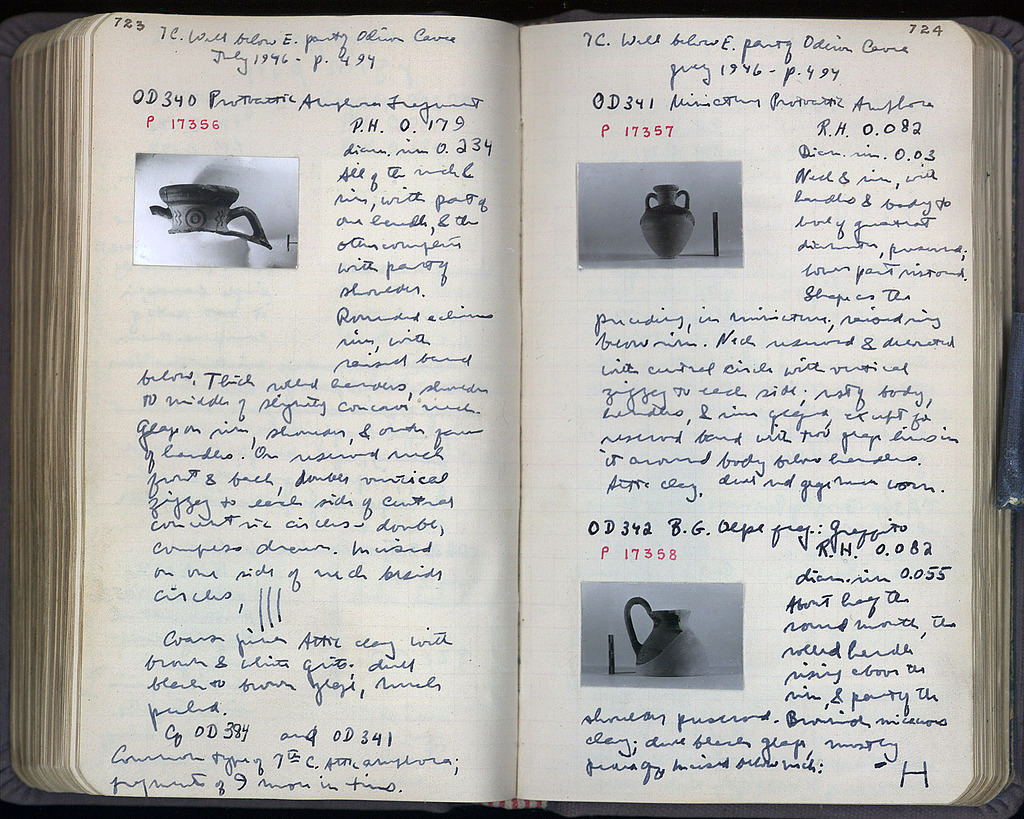 723
7C. Well below E. part of Odeion Cavea
July 1946 - p. 494
OD 340 Protoattic Amphora Fragment
P 17356
P.H. 0.179
diam. rim 0.234
All of the neck &
rim, with part of
one handle, & the
other complete
with part of
shoulder.
Rounded echinus
rim, with
raised band
below. Thick rolled handles, shoulder
to middle of slightly concave neck.
Glaze on rim, shoulder, & outer face
of handles. On reserved neck
front & back, double vertical
zigzag to each side of central
concentric circles - double,
compass drawn. Incised
on one side of neck beside
circles, |||
Coarse pinkish Attic clay with
brown & white grits; dull
black to brown glaze, much
peeled.
Cp OD 384 and OD 341
Common type of 7th C. Attic amphora;
fragments of 9 more in tins.
724
7C. Well below E. part of Odeion Cavea
July 1946 - p. 494
OD 341 Miniature Protoattic Amphora
P 17357
R.H. 0.082
Diam. rim. 0.03
Neck & rim, with
handles & body to
below greatest
diameter, preserved;
lower part restored.
Shape as the
preceding, in miniature, raised ring
below rim. Neck reserved & decorated
with central circle with vertical
zigzag to each side; rest of body,
handles, & rim glazed, except for
reserved band with two glaze lines in
it around body below handles.
Attic clay, dull red glaze much worn.
OD 342 B.G. Olpe frag.: Graffito
P 17358
R.H. 0.082
diam. rim 0.055
About half the
round mouth, the
rolled handle
rising above the
rim, & part of the
shoulder preserved. Brownish micaceous
clay; dull black glaze, mostly
peeled off. Incised below neck:
H